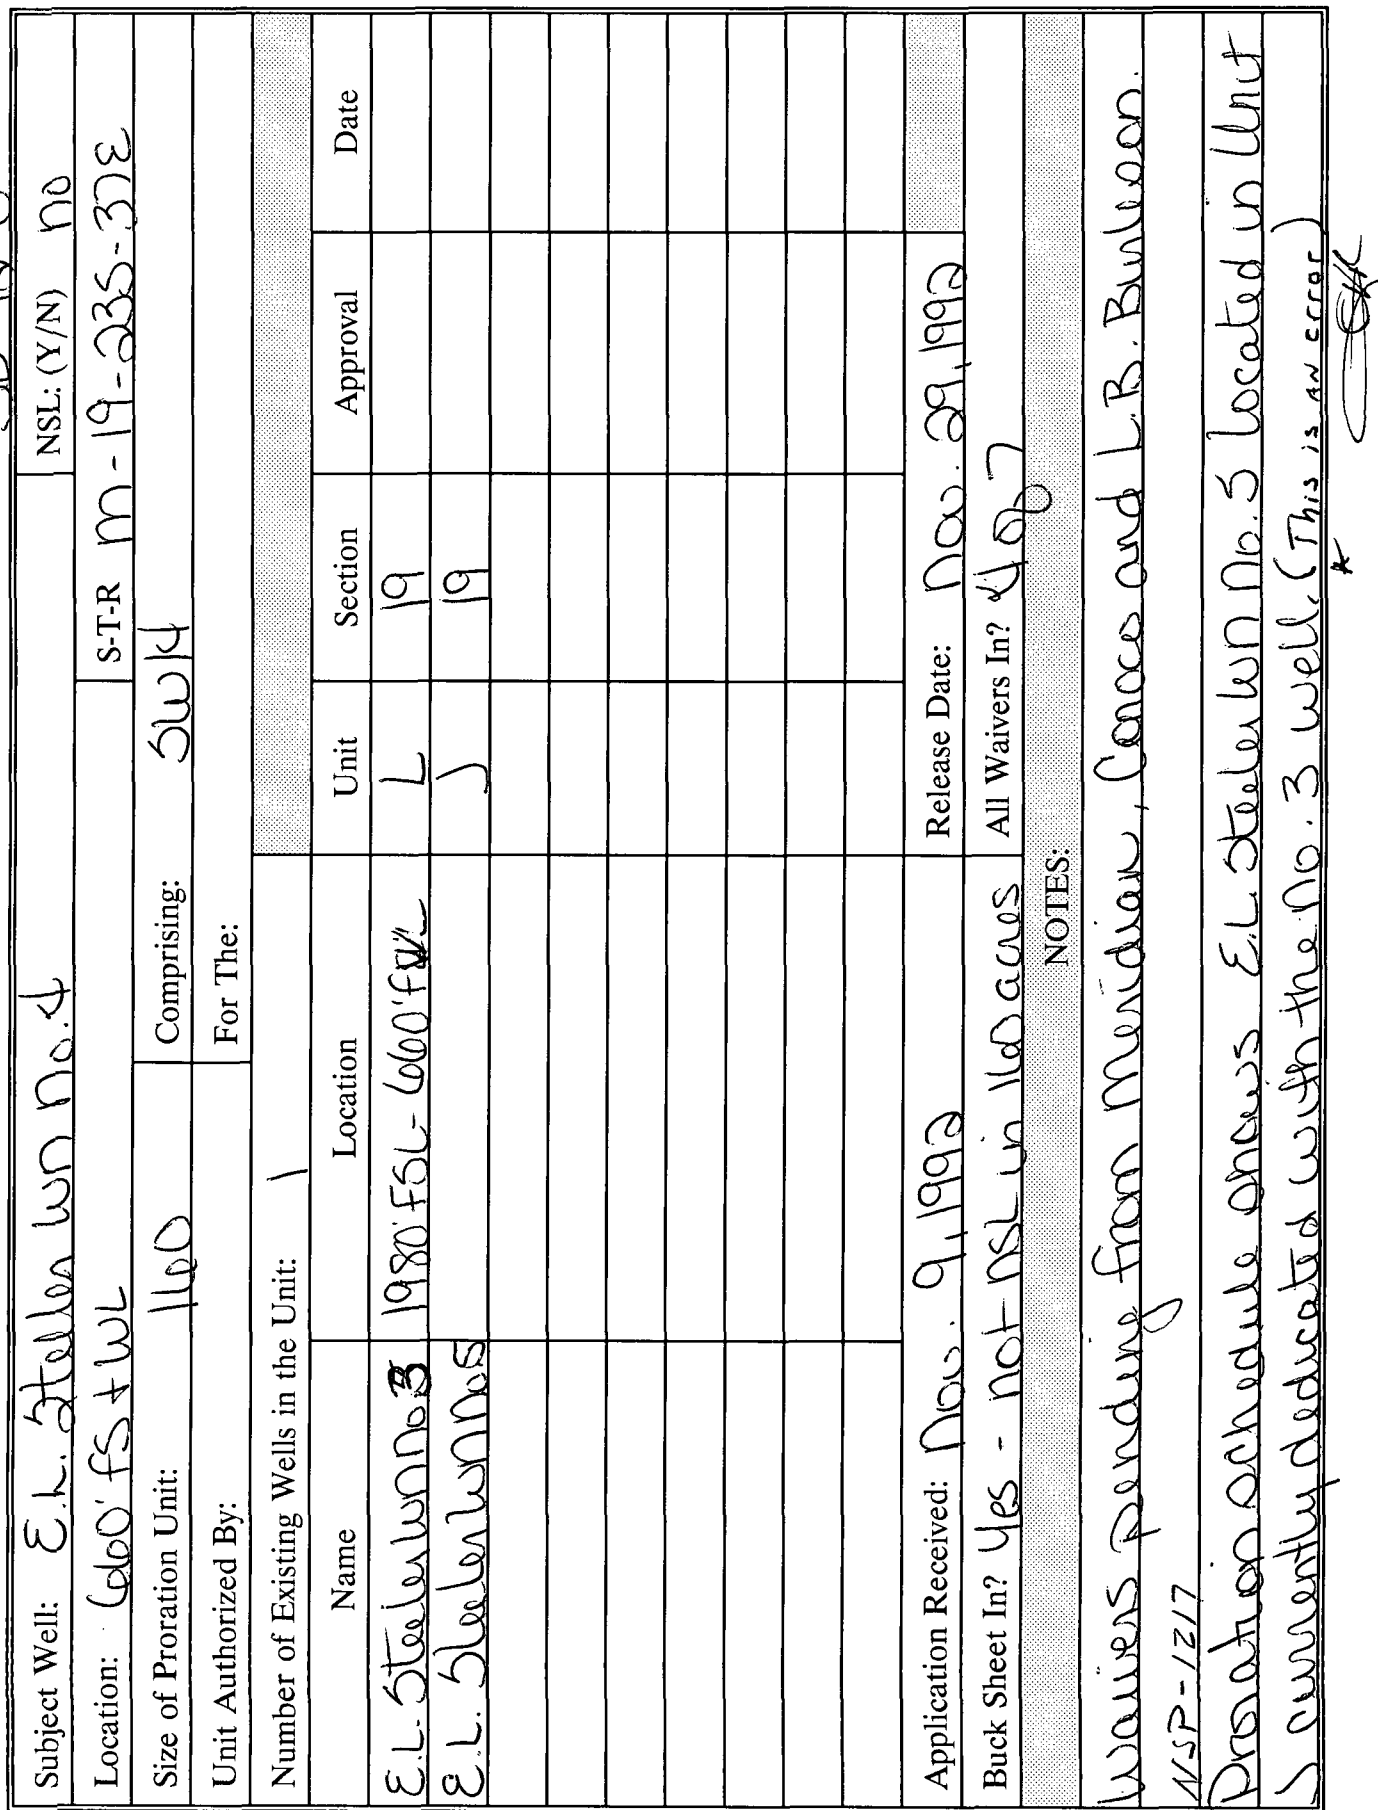 Subject Well: E.L. Steeler WN No. 4 NSL: (Y/N) no
Location: 660' FS & WL S-T-R M-19-23S-37E
Size of Proration Unit: 160 Comprising: SW/4
Unit Authorized By: For The:
Number of Existing Wells in the Unit: 1
Name Location Unit Section Approval Date
E.L. Steeler WN No 3 1980' FSL - 660' FWL L 19
E.L. Steeler WN No 5 J 19
Application Received: Nov. 9, 1992 Release Date: Nov. 29, 1992
Buck Sheet In? Yes - not NSL in 160 acres All Waivers In? 4 of 7
NOTES:
Waivers pending from Meridian, Conoco and L.B. Burleson.
NSP-1217
Proration schedule shows E.L. Steeler WN No. 5 located in Unit
J currently dedicated with the No. 3 well. (This is an error)
*